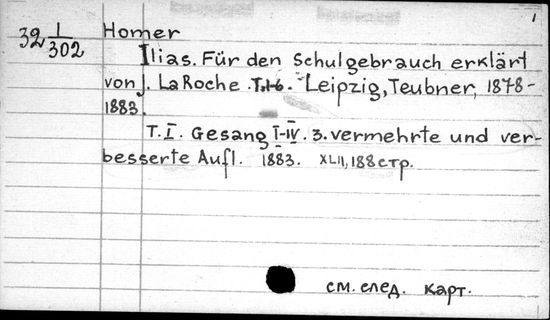 1
32 1/302 Homer
Ilias. Für den Schulgebrauch erklärt
von J. La Roche. T.1-6. Leipzig, Teubner, 1878-
1883.
T. I. Gesang I-IV. 3. vermehrte und ver-
besserte Aufl. 1883. XLII, 188 стр.
см. след. карт.